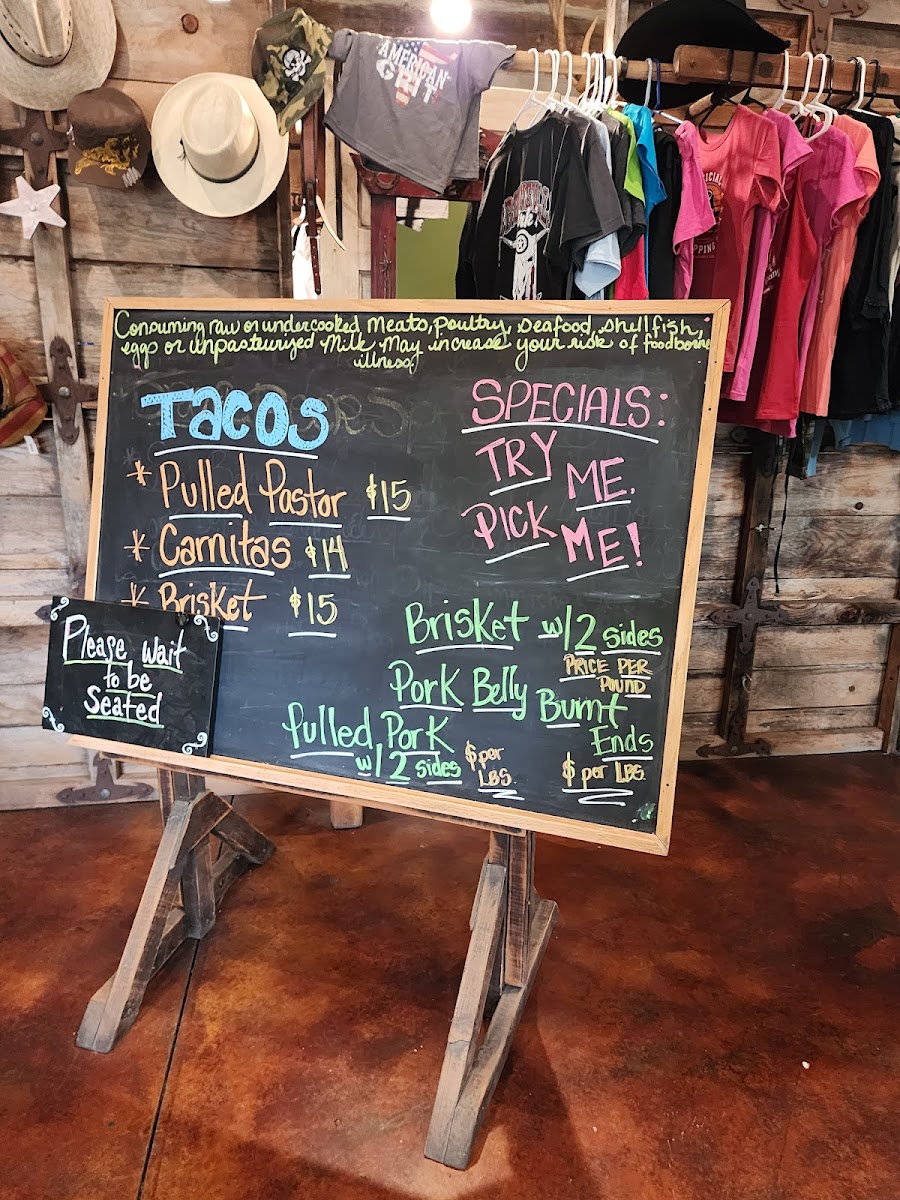 AMERICAN
Consuming raw or undercooked Meats, poultry, Seafood, shellfish,
eggs or unpasteurized Milk May increase your risk of foodborne
illness
TACOS
* Pulled Pastor $15
* Carnitas $14
* Brisket $15
SPECIALS:
TRY ME.
PICK ME!
Brisket w/2 sides
PRICE PER
POUND
Pork Belly Burnt
Ends
$ per LBS.
Pulled Pork
w/2 sides
$ per
LBS.
Please wait
to be
Seated